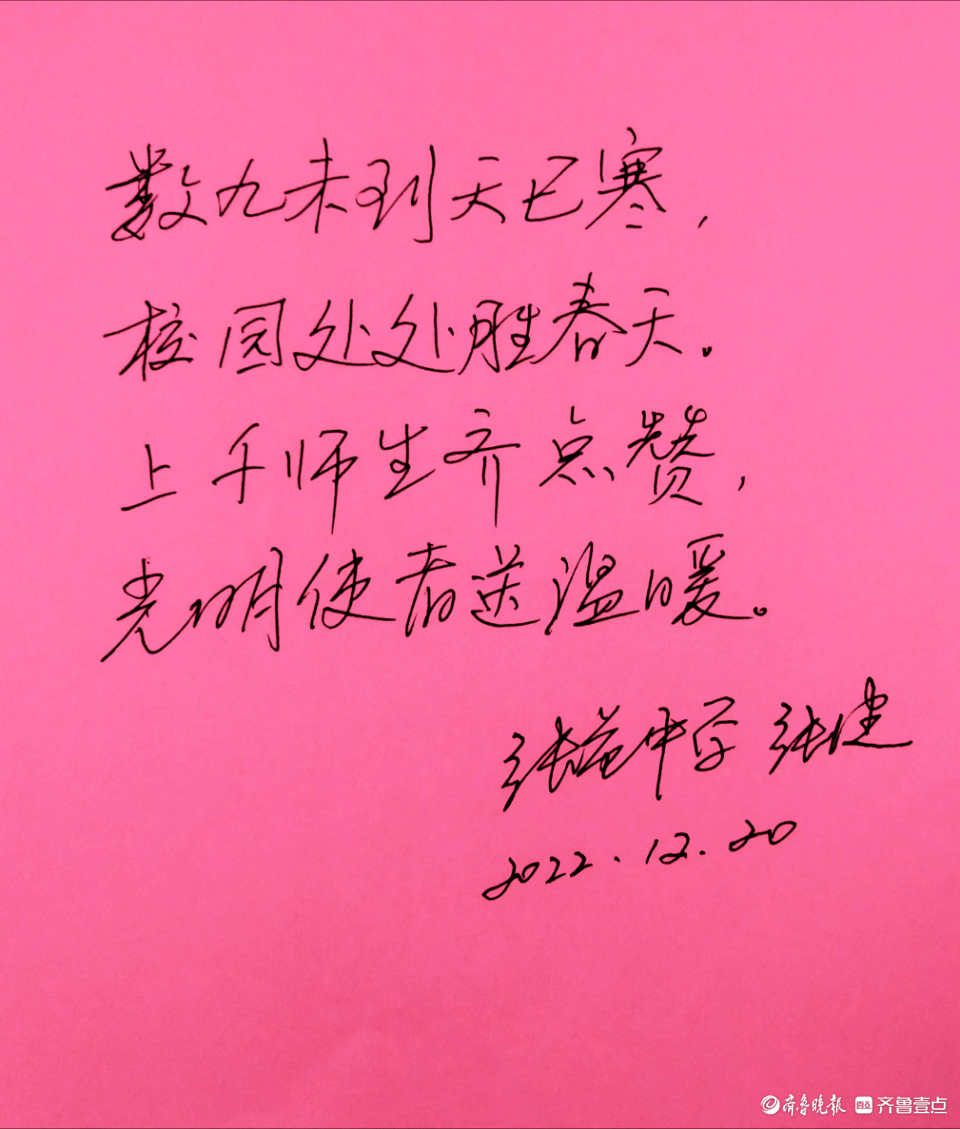 数九未到天已寒，
校园处处胜春天。
上千师生齐点赞，
光明使者送温暖。
张益中学 张健
2022.12.20
齐鲁晚报 齐鲁壹点